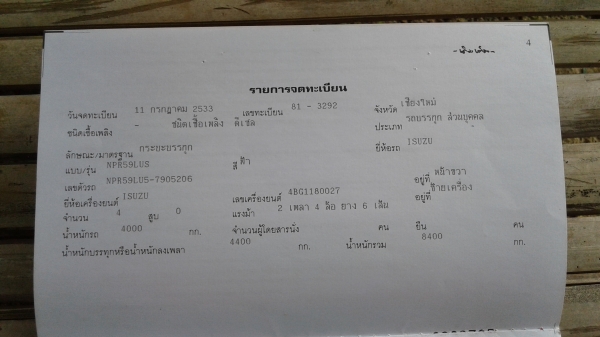 4
รายการจดทะเบียน
วันจดทะเบียน 11 กรกฎาคม 2533 เลขทะเบียน 81 - 3292 จังหวัด เชียงใหม่
ชนิดเชื้อเพลิง - ชนิดเชื้อเพลิง ดีเซล ประเภท รถบรรทุก ส่วนบุคคล
ลักษณะ/มาตรฐาน กระบะบรรทุก ยี่ห้อรถ ISUZU
แบบ/รุ่น NPR59LUS สี ฟ้า
เลขตัวรถ NPR59LU5-7905206 อยู่ที่ หน้าขวา
ยี่ห้อเครื่องยนต์ ISUZU เลขเครื่องยนต์ 4BG1180027 อยู่ที่ ซ้ายเครื่อง
จำนวน 4 สูบ 0 แรงม้า 2 เพลา 4 ล้อ ยาง 6 เส้น
น้ำหนักรถ 4000 กก. จำนวนผู้โดยสารนั่ง คน ยืน คน
น้ำหนักบรรทุกหรือน้ำหนักลงเพลา 4400 กก. น้ำหนักรวม 8400 กก.